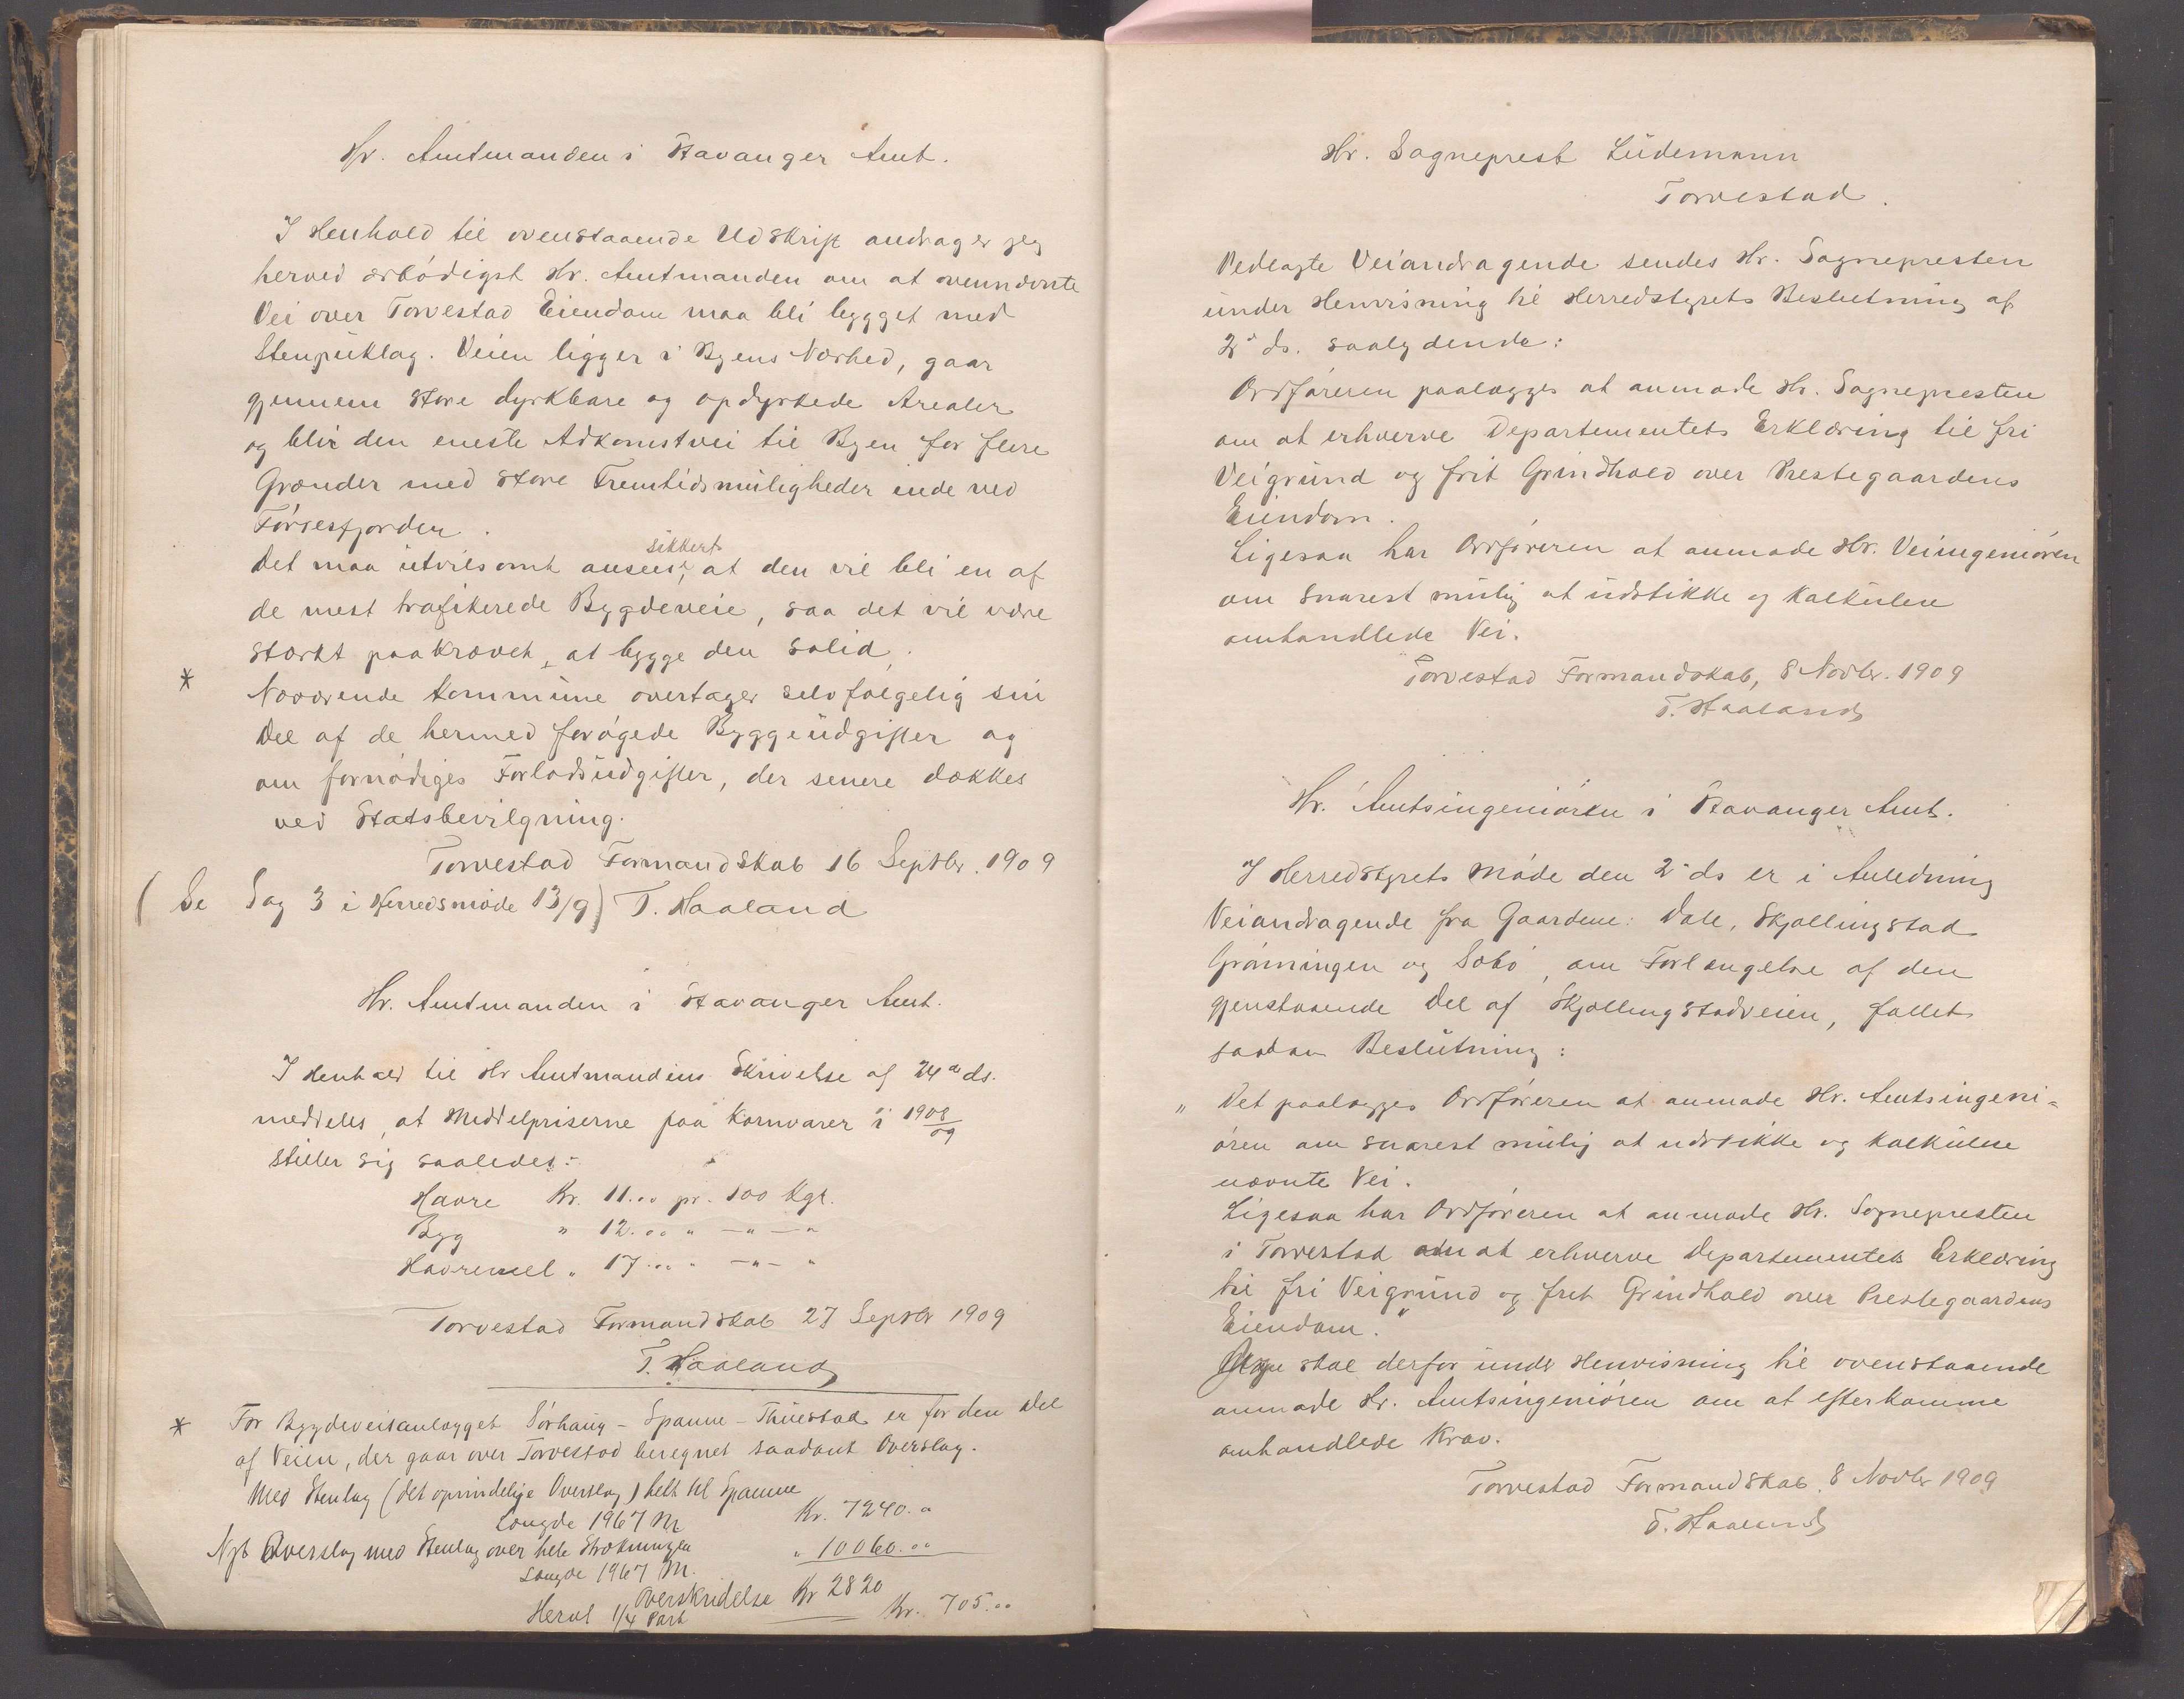 Hr. Amtmanden i Stavanger Amt.
I Henhold til ovenstaaende Udskrift andrager jeg
herved ærbødigst Hr. Amtmanden om at ovennævnte
Vei over Torvestad Eiendom maa bli bygget med
Stenpuklag. Veien ligger i Byens Nærhed, gaar
gjennem store dyrkbare og opdyrkede Arealer
og blir den eneste Adkomstvei til Byen for flere
Grænder med store Fremtidsmuligheder inde ved
Førresfjorden.
Det maa utvilsomt ansees sikkert, at den vil bli en af
de mest trafikerede Bygdeveie, saa det vil være
stærkt paakrævet, at bygge den solid.
* Nærværende Kommune overtager selvfølgelig sin
Del af de hermed forøgede Byggeudgifter og
om fornødiges Forlodsudgifter, der senere dækkes
ved Statsbevilgning.
Torvestad Formandskab 16 Septbr. 1909
(Se Sag 3 i Herredsmøde 13/9) T. Haaland
Hr. Amtmanden i Stavanger Amt.
I Henhold til Hr Amtmandens Skrivelse af 24de ds.
meddeles, at Middelpriserne paa Kornvarer i 1908/09
stiller sig saaledes:
Havre Kr. 11.00 pr. 100 Kgr.
Byg " 12.00 " - " - "
Havremel " 17.00 " - " - "
Torvestad Formandskab 27 Septbr 1909
T. Haaland
* For Bygdeveisanlægget Sørhaug - Spanne - Thuestad er for den Del
af Veien, der gaar over Torvestad beregnet saadant Overslag.
Med Stenlag (det oprindelige Overslag) helt til Spanne
Længde 1967 M Kr. 7240.00
Nyt Overslag med Stenlag over hele Strækningen
Længde 1967 M. " 10060.00
Overskridelse Kr 2820
Heraf 1/4 Part Kr. 705.00
Hr. Sogneprest Lüdemann
Torvestad.
Vedlagte Veiandragende sendes Hr. Sognepresten
under Henvisning til Herredstyrets Beslutning af
2' ds. saalydende:
Ordføreren paalægges at anmode Hr. Sognepresten
om at erhverve Departementets Erklæring til fri
Veigrund og frit Grindhold over Prestegaardens
Eiendom.
Ligesaa har Ordføreren at anmode Hr. Veiingeniøren
om snarest mulig at udstikke og kalkulere
omhandlede Vei.
Torvestad Formandskab, 8 Novbr. 1909
T. Haaland
Hr. Amtsingeniøren i Stavanger Amt.
I Herredstyrets Møde den 2' ds er i Anledning
Veiandragende fra Gaardene: Dale, Skjællingstad
Grønningen og Søbø, om Forlængelse af den
gjenstaaende Del af Skjællingstadveien, fattet
saadan Beslutning:
" Det paalægges Ordføreren at anmode Hr. Amtsingeni=
øren om snarest mulig at udstikke og kalkulere
nævnte Vei.
Ligesaa har Ordføreren at anmode Hr. Sognepresten
i Torvestad om at erhverve Departementets Erklæring
til fri Veigrund og frit Grindhold over Prestegaardens
Eiendom."
skal derfor under Henvisning til ovenstaaende
anmode Hr. Amtsingeniøren om at efterkomme
omhandlede Krav.
Torvestad Formandskab, 8 Novbr 1909
T. Haaland